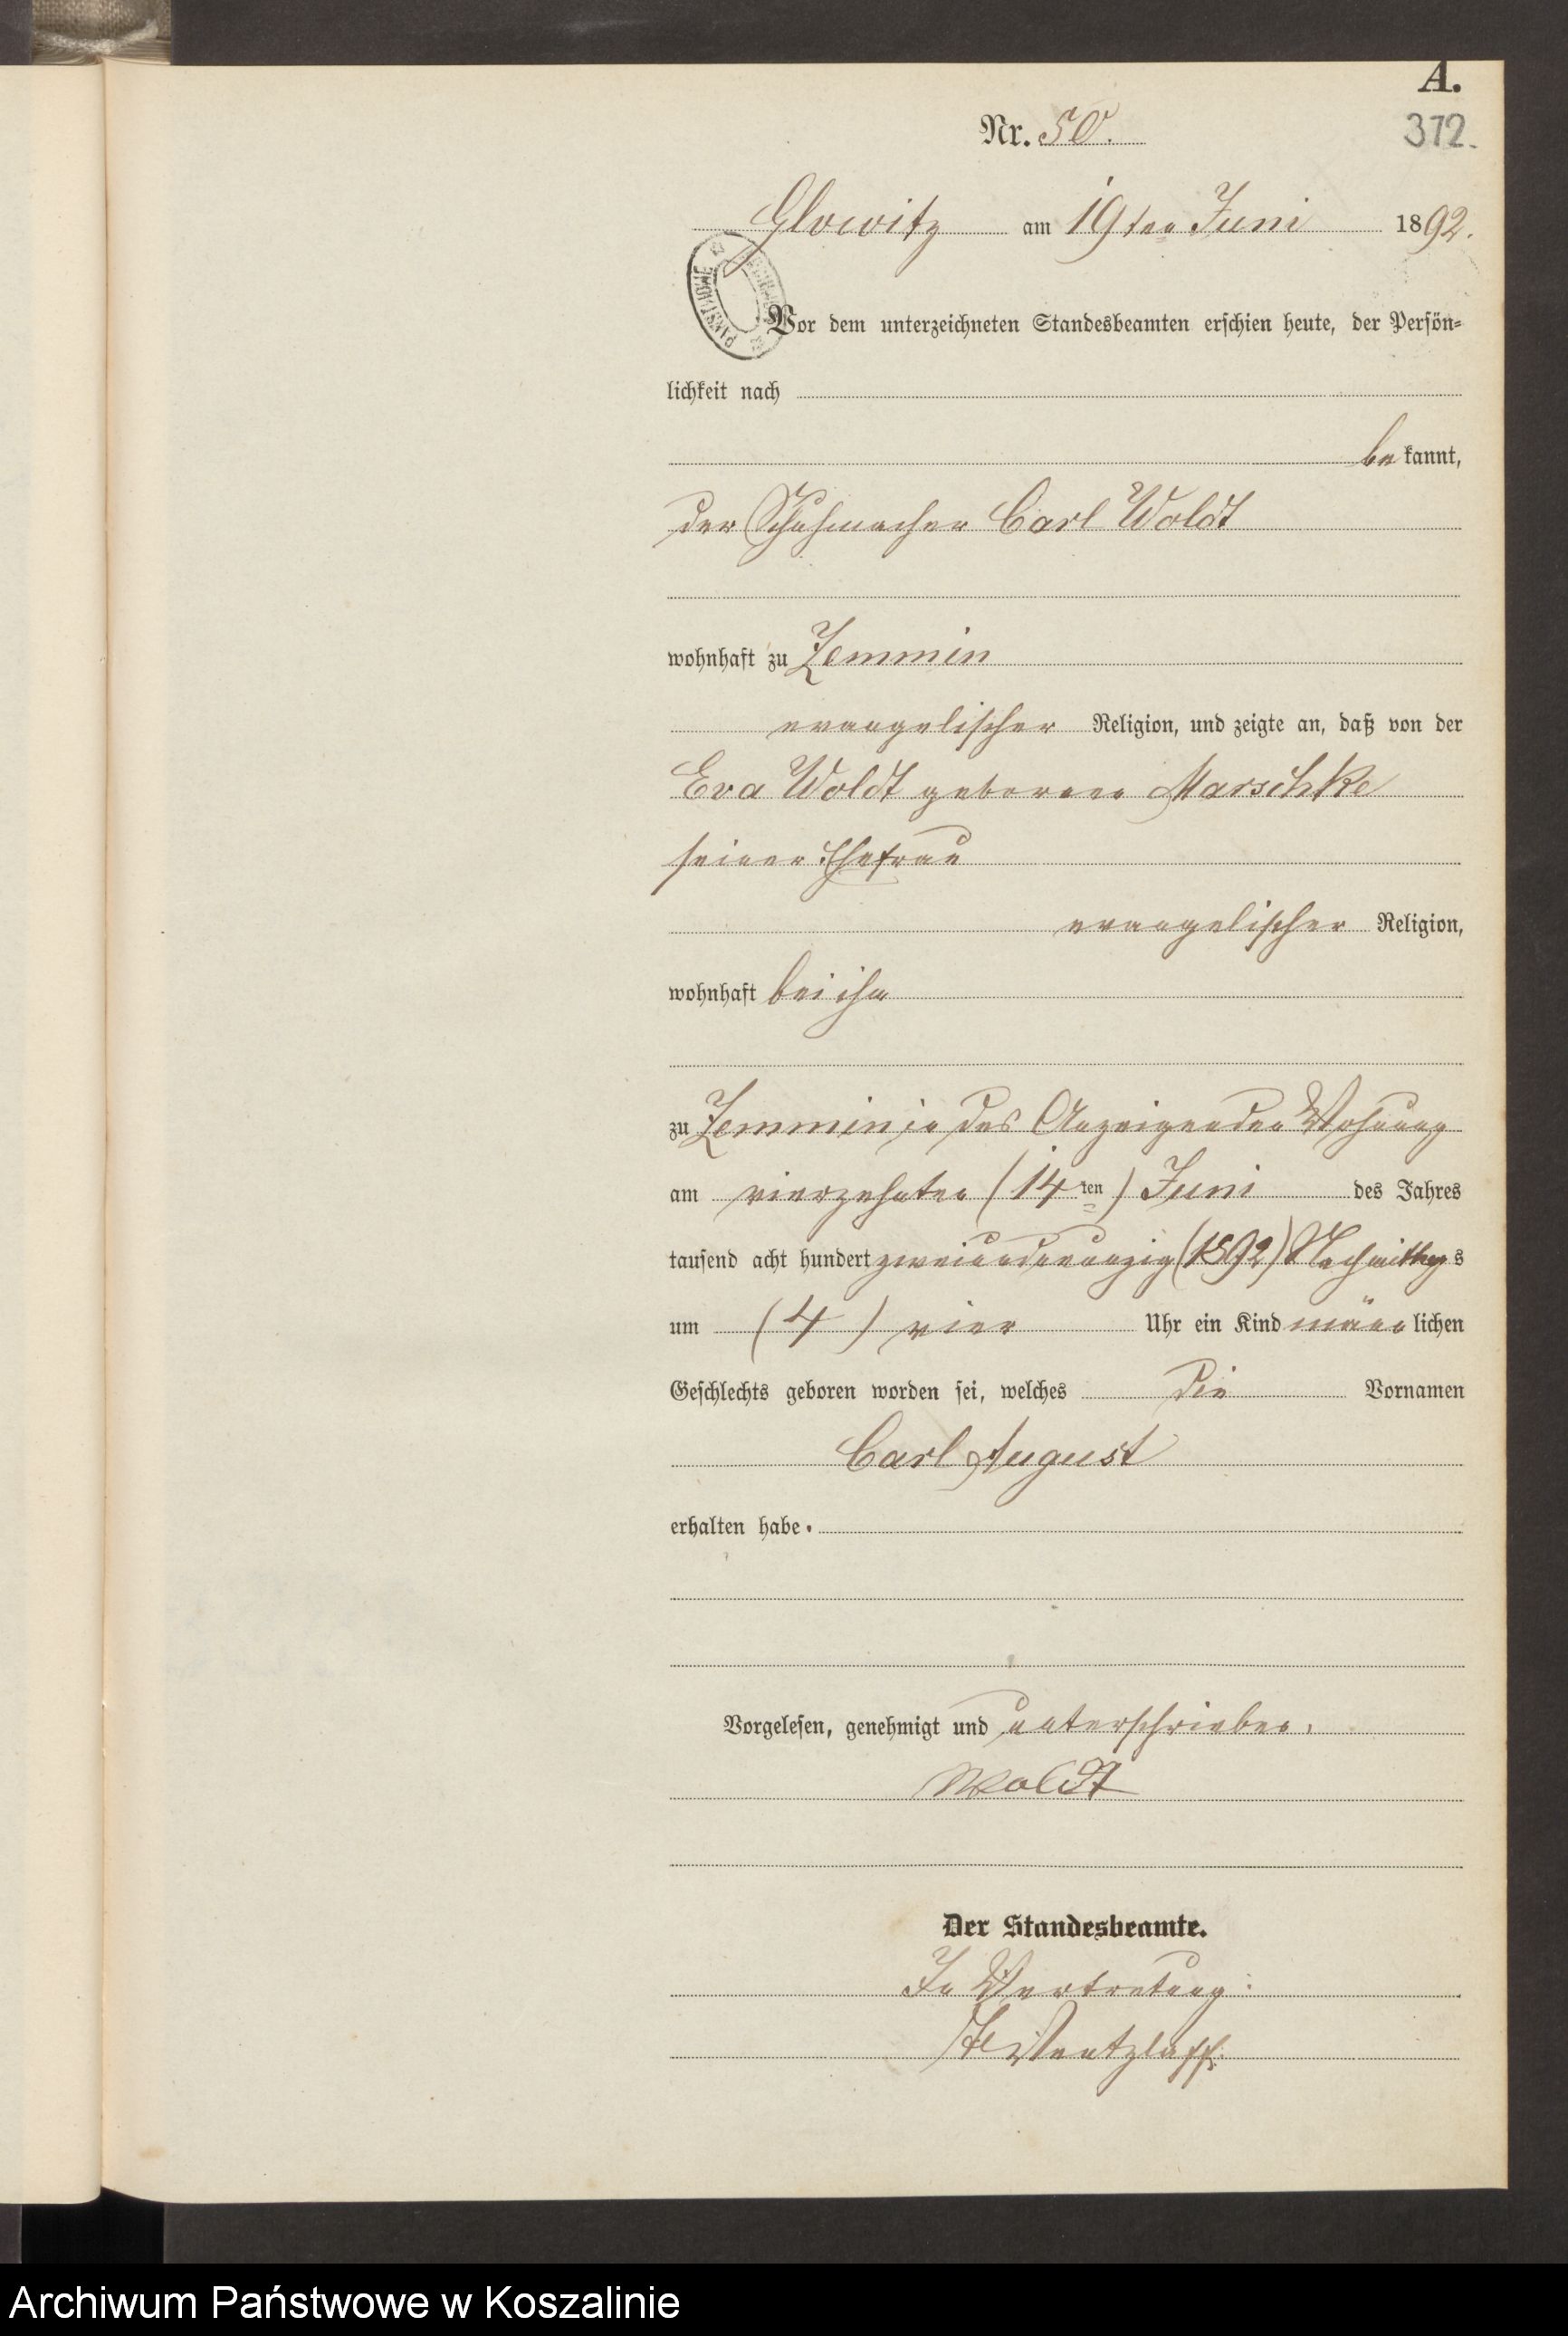 A.
Nr. 50.
372.
Glowitz am 19ten Juni 1892.
PAŃSTWOWE
Vor dem unterzeichneten Standesbeamten erschien heute, der Persön=
lichkeit nach
bekannt,
der Schuhmacher Carl Woldt
wohnhaft zu Zemmin
evangelischer Religion, und zeigte an, daß von der
Eva Woldt geborenen Marschke
seiner Ehefrau
evangelischer Religion,
wohnhaft bei ihm
zu Zemmin in des Anzeigenden Wohnung
am vierzehnten (14ten) Juni des Jahres
tausend acht hundert zweiundneunzig (1892) Nachmittags
um (4) vier Uhr ein Kind männlichen
Geschlechts geboren worden sei, welches die Vornamen
Carl August
erhalten habe.
Vorgelesen, genehmigt und unterschrieben.
Woldt
Der Standesbeamte.
In Vertretung:
Wentzlaff.
Archiwum Państwowe w Koszalinie